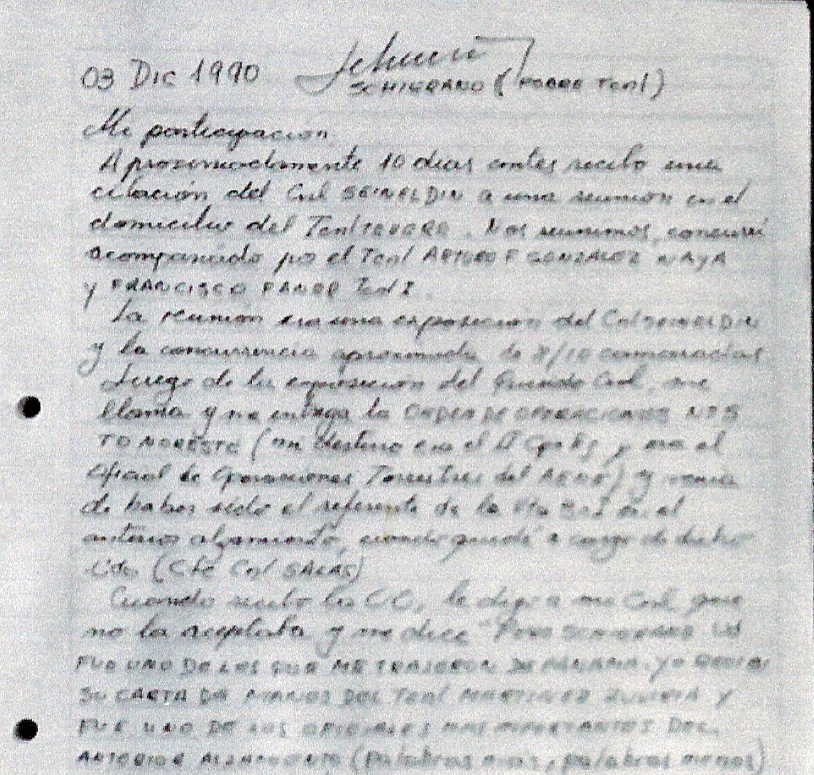 03 Dic 1990
SCHIERANO (POBRE Tcnl)
Mi participación.
Aproximadamente 10 dias antes recibo una
citación del Cnl SEINELDIN a una reunion en el
domicilio del Tcnl. Nos reunimos, concurri
acompañado por el Tcnl ARTURO F GONZALEZ NAYA
y FRANCISCO Tcnl
La reunion era una exposición del Cnl SEINELDIN
y la concurrencia aproximada de 8/10 camaradas
Luego de la exposición del Cnl, me
llama y me entrega la ORDEN DE OPERACIONES
TO NORESTE (mi destino era el y era el
Oficial de Operaciones Terrestres del) y venia
de haber sido el referente de la en el
anterior alzamiento, cuando quedé a cargo de dicho
Cdo (Cte Cnl SALAS)
Cuando recibo la OO, le digo a mi Cnl que
no la aceptaba y me dice "PERO SCHIERANO UD
FUE UNO DE LOS QUE ME TRAJERON DE PANAMA. YO RECIBI
SU CARTA DE MANOS DEL Tcnl MARTINEZ ZUVIRIA Y
FUE UNO DE LOS OFICIALES MAS IMPORTANTES DEL
ANTERIOR ALZAMIENTO (palabras mas, palabras menos)